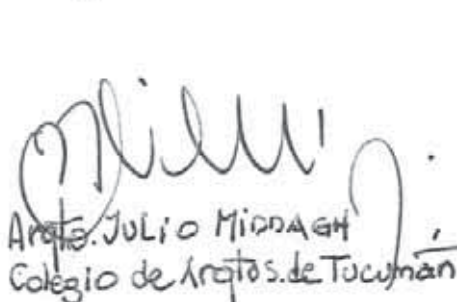 Arqto. JULIO MIDDAGH
Colegio de Arqtos. de Tucumán